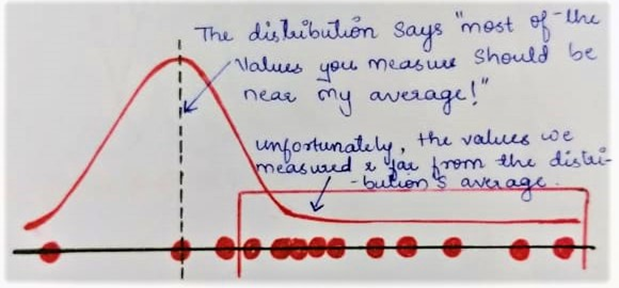 The distribution says "most of the
values you measure should be
near my average!"
unfortunately, the values we
measured r far from the distri-
-bution's average.